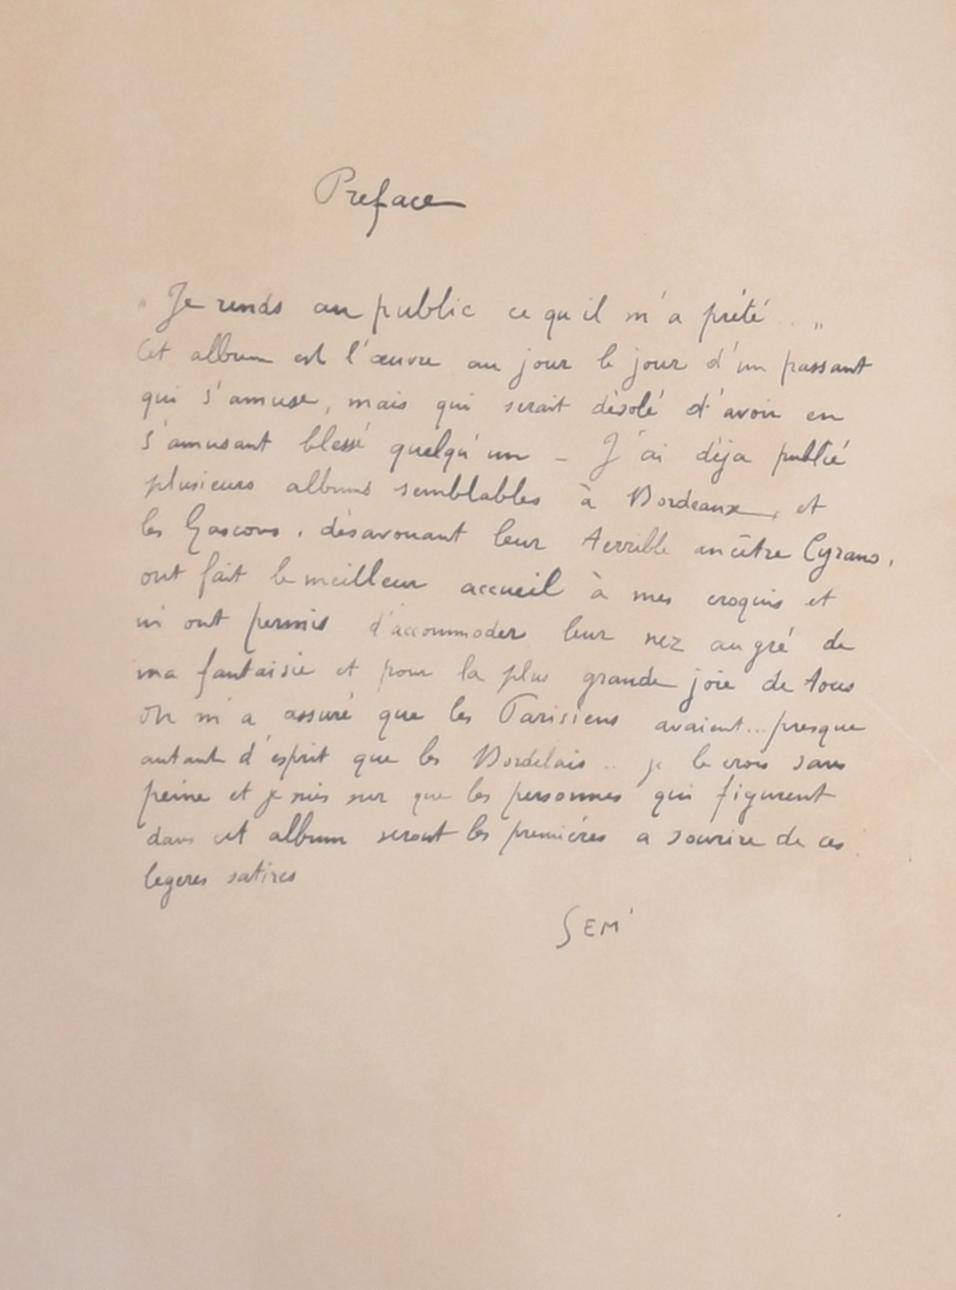 Preface
" Je rends au public ce qu'il m'a prêté... "
Cet album est l'œuvre au jour le jour d'un passant
qui s'amuse, mais qui serait désolé d'avoir en
s'amusant blessé quelqu'un _ J'ai déja publié
plusieurs albums semblables à Bordeaux, et
les Gascons, désavouant leur terrible ancêtre Cyrano,
ont fait le meilleur accueil à mes croquis et
m'ont permis d'accommoder leur nez au gré de
ma fantaisie et pour la plus grande joie de tous
On m'a assuré que les Parisiens avaient... presque
autant d'esprit que les Bordelais .. je le crois sans
peine et je suis sur que les personnes qui figurent
dans cet album seront les premiéres a sourire de ces
legeres satires
SEM